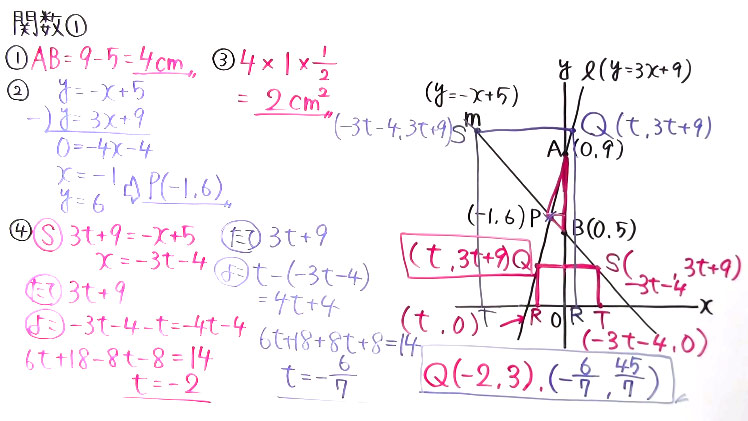 関数①
① AB=9-5=4cm
② y=-x+5
-) y=3x+9
0=-4x-4
x=-1
y=6
⇨ P(-1,6)
③ 4×1×1/2
= 2cm²
④ Ⓢ 3t+9=-x+5
x=-3t-4
たて 3t+9
よこ -3t-4-t=-4t-4
6t+18-8t-8=14
t=-2
たて 3t+9
よこ t-(-3t-4)
=4t+4
6t+18+8t+8=14
t=-6/7
y
l(y=3x+9)
(y=-x+5)
m
(-3t-4,3t+9)S
Q(t,3t+9)
A (0,9)
(-1,6)P
B(0,5)
(t,3t+9)Q
S(-3t-4,3t+9)
x
T R O R T
(t,0)
(-3t-4,0)
Q(-2,3),(-6/7,45/7)